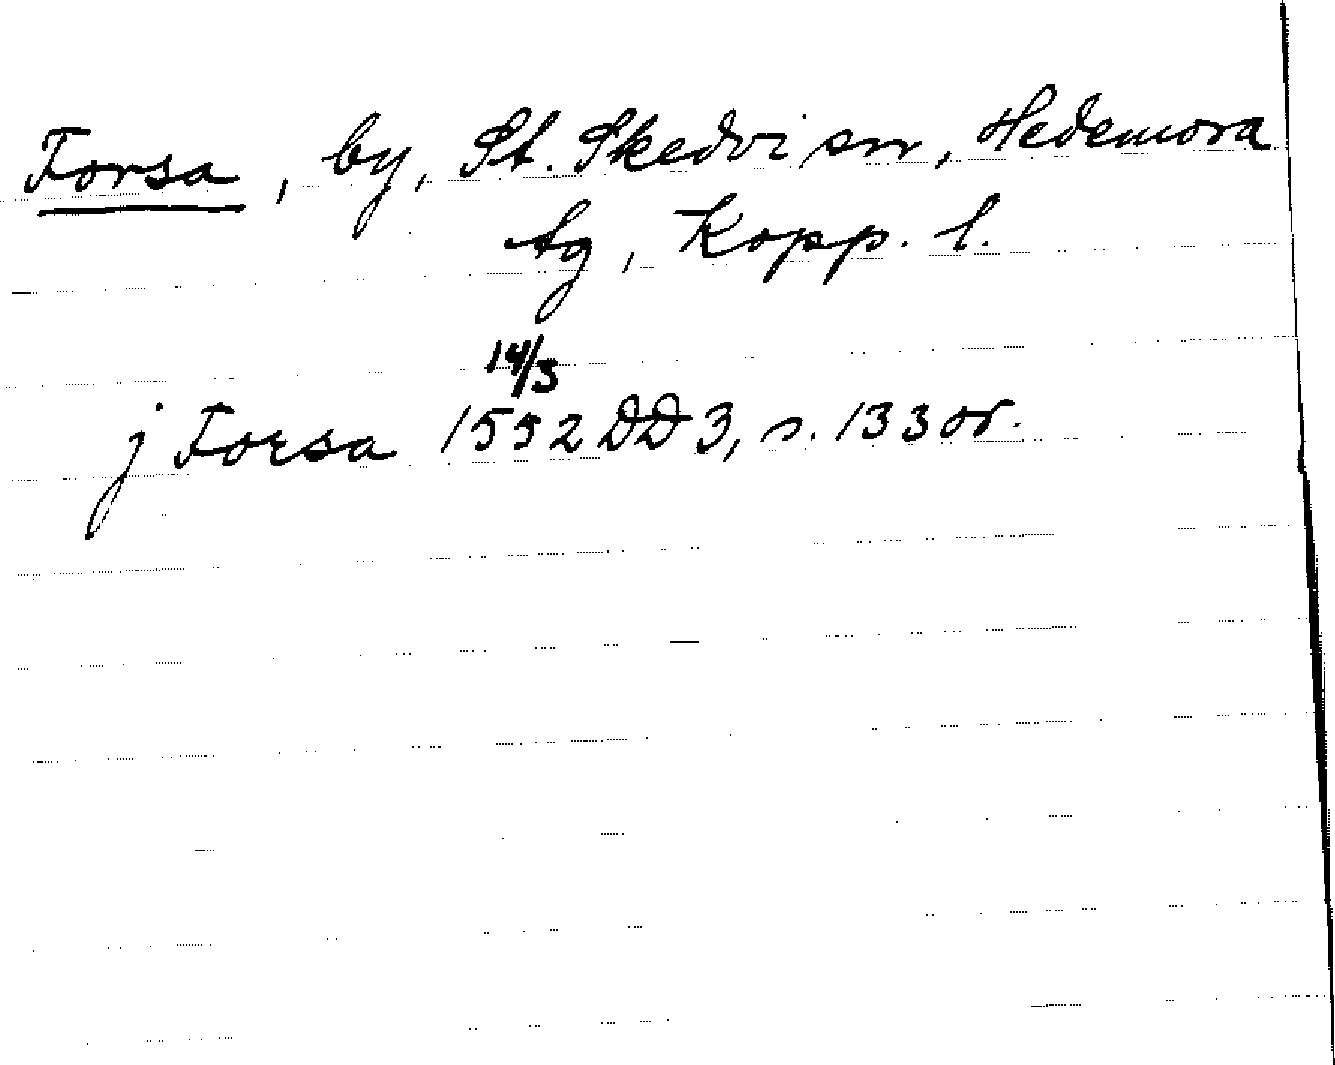 Forsa, by, St. Skedvi sn, Hedemora
tg, Kopp. l.
14/3
j Forsa 1552 DD 3, s. 133 or.